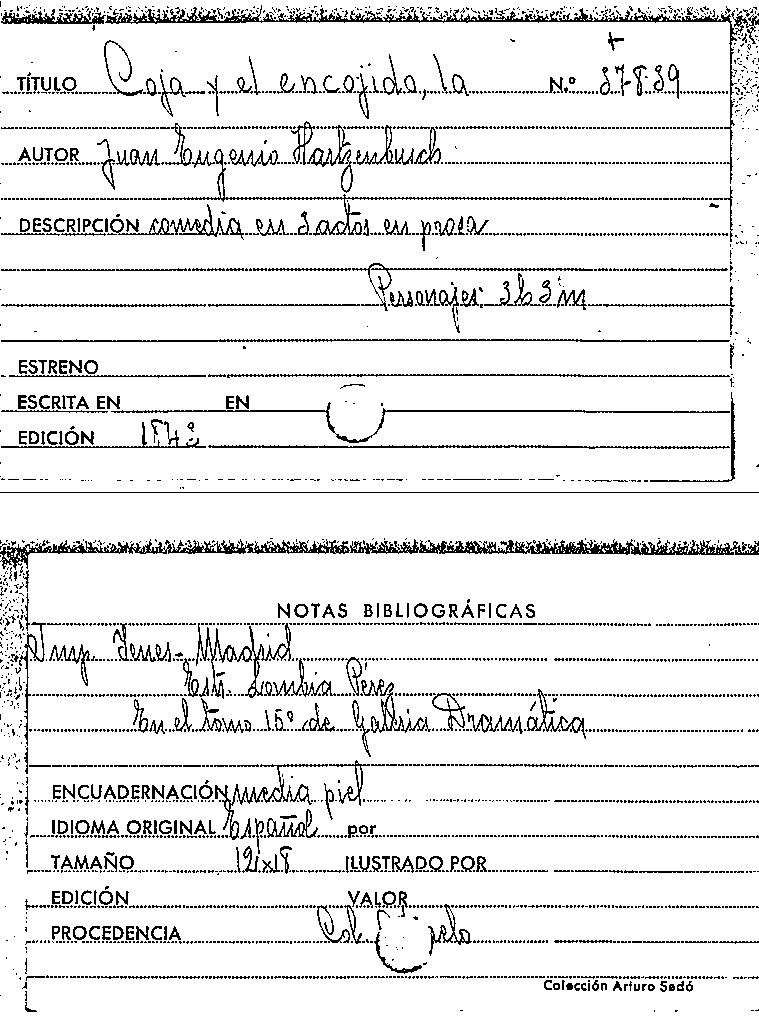 TÍTULO Coja y el encojido, la N.º 37839
AUTOR Juan Eugenio Hartzenbusch
DESCRIPCIÓN comedia en 3 actos en prosa
Personajes: 3h 3m
ESTRENO
ESCRITA EN EN
EDICIÓN 1843
NOTAS BIBLIOGRÁFICAS
Imp. Yenes - Madrid
Lombia Pérez
En el tomo 15º de Galería Dramática
ENCUADERNACIÓN media piel
IDIOMA ORIGINAL Español por
TAMAÑO 12x18 ILUSTRADO POR
EDICIÓN VALOR
PROCEDENCIA Col.
Colección Arturo Sedó